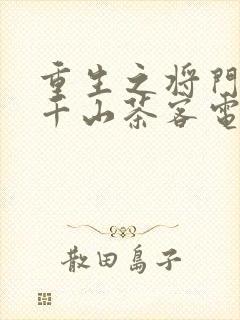 重生之将門
千山茶客電
散田島子